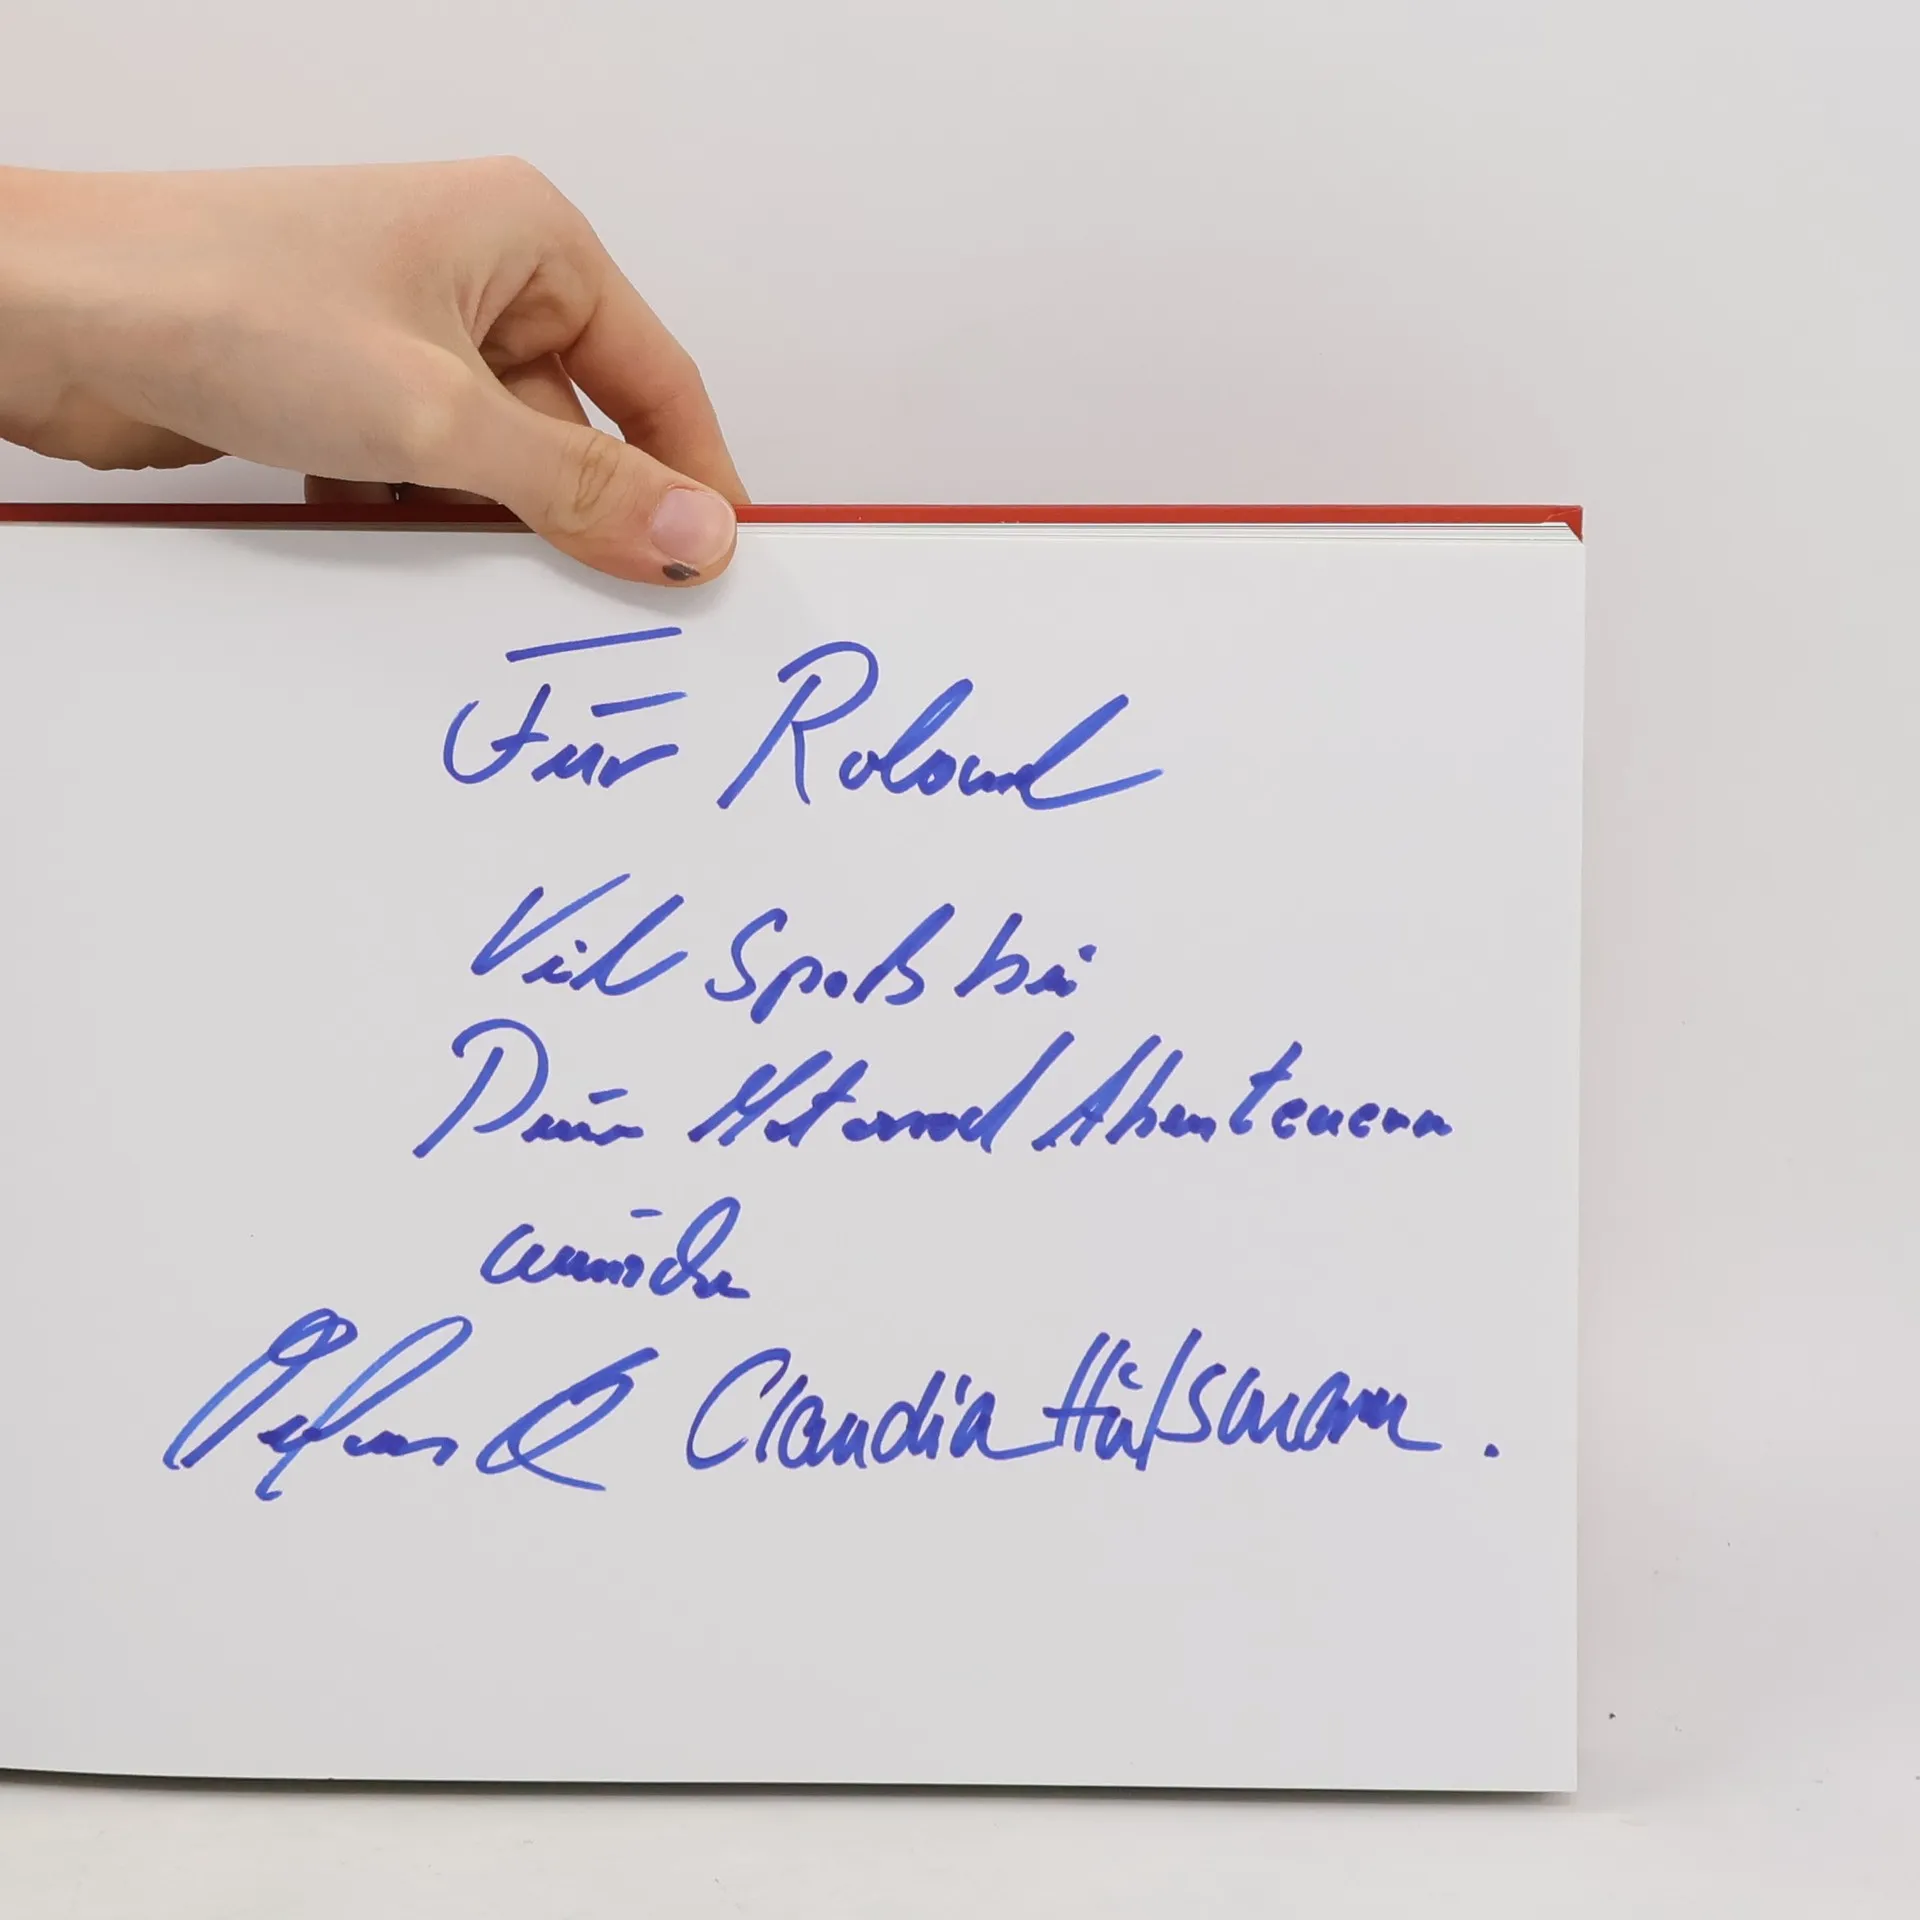 Für Roland
Viel Spaß bei
Deinen Motorrad Abenteuern
wünschen
Claudia Hülsmann.